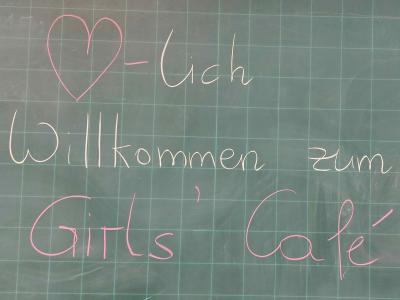 ♡-lich
Willkommen zum
Girls' Café